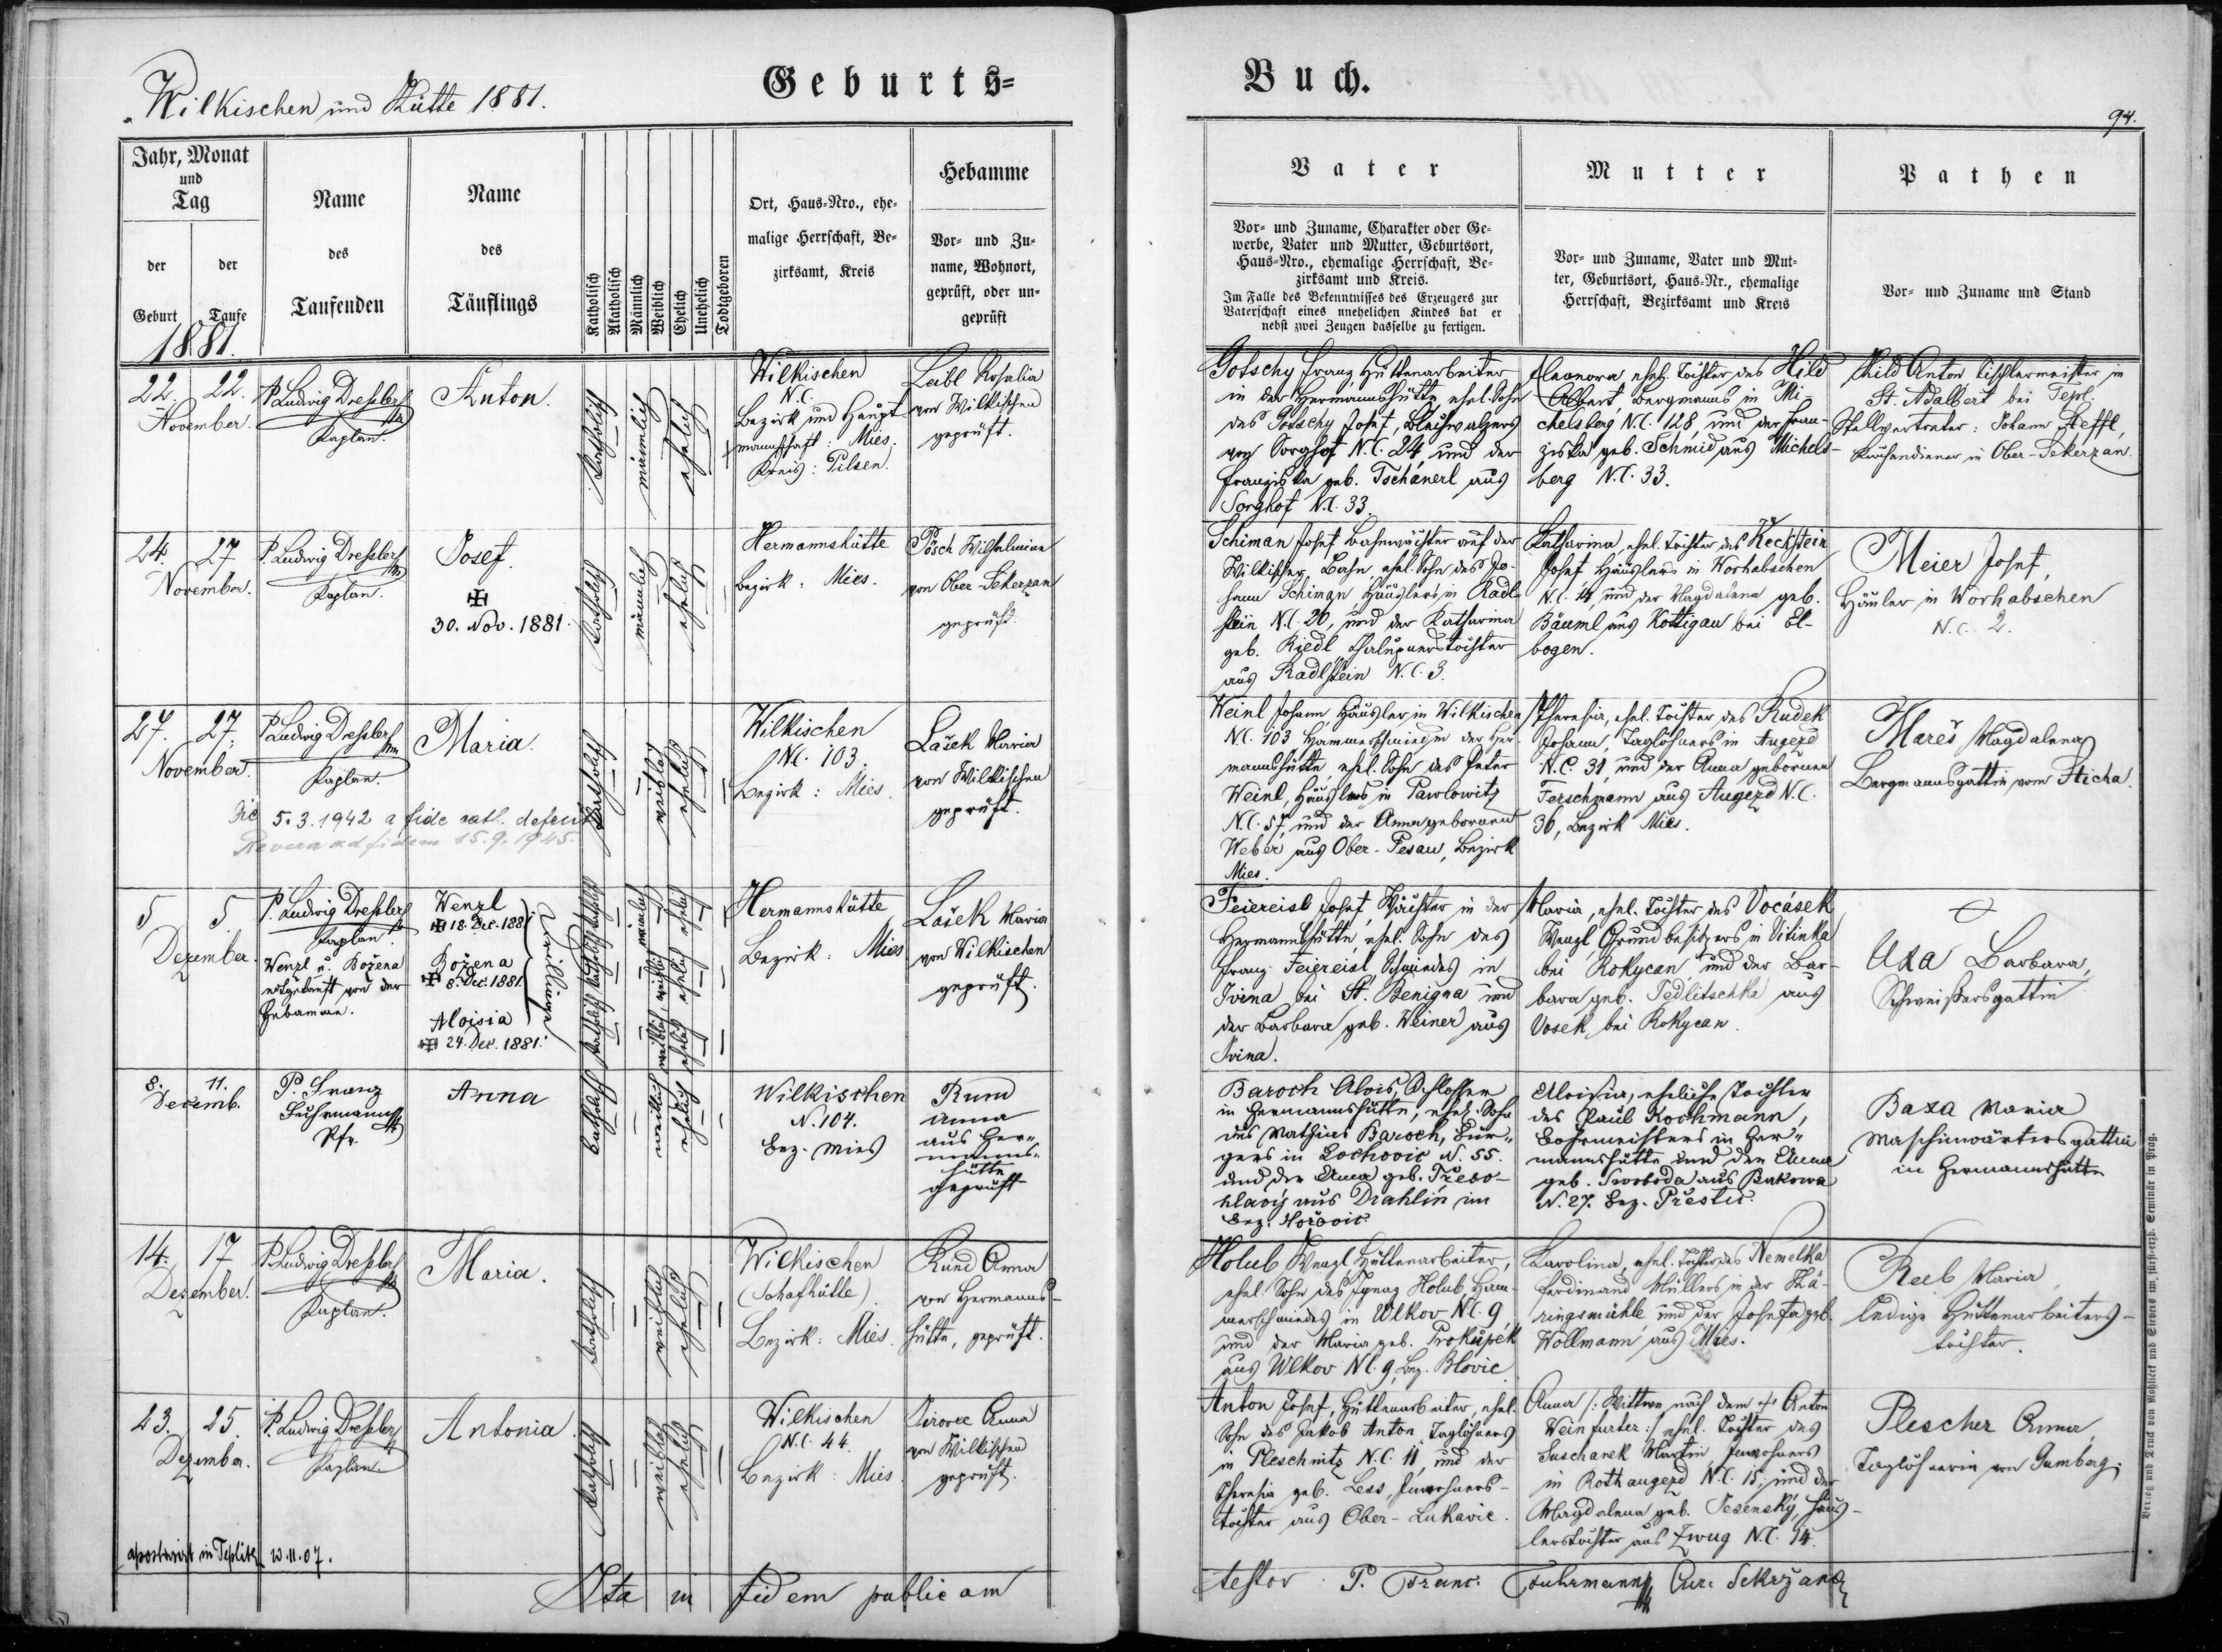 Wilkischen und Hütte 1881.
Geburts=
Buch.
94.
Jahr, Monat
und
Tag
der
Geburt
der
Taufe
Name
des
Taufenden
Name
des
Täuflings
Katholisch
Akatholisch
Männlich
Weiblich
Ehelich
Unehelich
Todtgeboren
Ort, Haus=Nro., ehe=
malige Herrschaft, Be=
zirksamt, Kreis
Hebamme
Vor= und Zu=
name, Wohnort,
geprüft, oder un=
geprüft
Vater
Vor= und Zuname, Charakter oder Ge=
werbe, Vater und Mutter, Geburtsort,
Haus=Nro., ehemalige Herrschaft, Be=
zirksamt und Kreis.
Im Falle des Bekenntnisses des Erzeugers zur
Vaterschaft eines unehelichen Kindes hat er
nebst zwei Zeugen dasselbe zu fertigen.
Mutter
Vor= und Zuname, Vater und Mut=
ter, Geburtsort, Haus=Nr., ehemalige
Herrschaft, Bezirksamt und Kreis
Pathen
Vor= und Zuname und Stand
1881.
22. 22.
November.
P. Ludwig Dressler
Kaplan.
Anton.
katholisch
männlich
ehelich
Wilkischen
N.C.
Bezirk und Haupt
mannschaft: Mies.
Kreis: Pilsen.
Leibl Rosalia
von Wilkischen
geprüft.
Gotschy Franz, Hüttenarbeiter
in der Hermannshütte, ehel. Sohn
des Gotschy Josef, Bleiwalzers
von Sorghof N.C. 24, und der
Franziska geb. Tschánerl aus
Sorghof N.C. 33.
Eleonora, ehel. Tochter des Hild
Albert, Bergmanns in Mi-
chelsberg N.C. 128, und der Fran-
ziska geb. Schmid aus Michels-
berg N.C. 33.
Hild Anton Tischlermeister in
St. Adalbert bei Tepl.
Stellvertreter: Johann Steffl,
Kirchendiener in Ober-Sekerzan.
24. 27.
November.
P. Ludwig Dressler
Kaplan.
Josef.
✠
30. Nov. 1881.
katholisch
männlich
ehelich
Hermannshütte
Bezirk: Mies.
Pösch Wilhelmine
von Ober-Sekerzan
geprüft.
Schiman Josef, Bahnwächter auf der
Wilkischer Bahn, ehel. Sohn des Jo-
hann Schiman, Häuslers in Radl-
stein N.C. 20, und der Katharina
geb. Riedl, Chaluppnerstochter
aus Radlstein N.C. 3.
Katharina, ehel. Tochter des Keckstein
Josef, Häuslers in Worhabschen
N.C. 14, und der Magdalena geb.
Bäuml aus Kottigau bei El-
bogen.
Meier Josef,
Häusler in Worhabschen
N.C. 2.
27. 27.
November.
P. Ludwig Dressler
Kaplan.
Maria.
5.3.1942 a fide cath. defecit
Reversa ad fidem 15.9.1945.
katholisch
weiblich
ehelich
Wilkischen
N.C. 103.
Bezirk: Mies.
Lašek Maria
von Wilkischen
geprüft.
Weinl Johann, Häusler in Wilkischen
N.C. 103 Hammerschmied in der Her-
mannshütte, ehel. Sohn des Peter
Weinl, Häuslers in Pawlowitz
N.C. 57, und der Anna geborenen
Weber aus Ober-Pesau, Bezirk
Mies.
Theresia, ehel. Tochter des Rudek
Johann, Taglöhners in Augezd
N.C. 31, und der Anna geborenen
Ferschmann aus Augezd N.C.
36, Bezirk Mies.
Mareš Magdalena
Bergmannsgattin vom Sticha.
5 5.
Dezember.
P. Ludwig Dressler
Kaplan.
Wenzl u. Božena
nothgetauft von der
Hebamme.
Wenzl
✠ 18. Dec. 1881
Božena
✠ 8. Dec. 1881
Aloisia
✠ 24. Dec. 1881.
Drillinge
Hermannshütte
Bezirk: Mies
Lašek Maria
von Wilkischen
geprüft.
Feiereisl Josef, Wächter in der
Hermannshütte, ehel. Sohn des
Franz Feiereisl, Schmiedes in
Ivina bei St. Benigna und
der Barbara geb. Weiner aus
Ivina.
Maria, ehel. Tochter des Vocásek
Wenzl, Grundbesitzers in Vitinka
bei Rokycan, und der Bar-
bara geb. Tedlitschka aus
Vosek bei Rokycan.
Uxa Barbara,
Schweißersgattin
8. 11.
Decemb.
P. Franz
Fuhrmann
Pfr.
Anna
katholisch
weiblich
ehelich
Wilkischen
N. 104.
Bez. Mies
Kund
Anna
aus Her-
manns-
hütte
geprüft
Baroch Alois, Schlosser
in Hermannshütte, ehel. Sohn
des Mathias Baroch, Bür-
gers in Lochovic N. 55.
und der Anna geb. Třebo-
hlavý aus Drahlín im
Bez. Hořovic.
Aloisia, eheliche Tochter
des Paul Kochmann,
Bohrmeisters in Her-
mannshütte und der Anna
geb. Swoboda aus Bukowa
N. 27. Bez. Přestic.
Baxa Maria
Maschinwärtersgattin
in Hermannshütte
14. 17
Dezember.
P. Ludwig Dressler
Kaplan.
Maria.
katholisch
weiblich
ehelich
Wilkischen
(Schafhütte)
Bezirk: Mies.
Kund Anna
von Hermanns-
hütte, geprüft.
Holub Wenzl, Hüttenarbeiter,
ehel. Sohn des Ignaz Holub, Ham-
merschmiedes in Wlkov N.C. 9,
und der Maria geb. Prokupek
aus Wlkov N.C. 9, Bez. Blovic
Karolina, ehel. Tochter des Nemelka
Ferdinand Müllers in der Hä-
ringsmühle und der Josefa geb.
Wollmann aus Mies.
Reeb Maria,
ledige Hüttenarbeiters-
tochter.
23. 25.
Dezember.
P. Ludwig Dressler
Kaplan.
Antonia
katholisch
weiblich
ehelich
Wilkischen
N.C. 44.
Bezirk: Mies.
Anna
von Wilkischen
geprüft.
Anton Josef, Hüttenarbeiter, ehel.
Sohn des Jakob Anton, Taglöhners
in Pleschnitz N.C. 11, und der
Theresia geb. Less, Inwohners-
tochter aus Ober-Lukavic.
Anna /: Wittwe nach dem † Anton
Weinfurter :/ ehel. Tochter des
Suschanek Martin, Inwohners
in Rothaugezd N.C. 15, und der
Magdalena geb. Jesensky, Häus-
lerstochter aus Zwug N.C. 14.
Plescher Anna,
Taglöhnerin von Gumberg.
apostasiert in Teplitz 10.11.07.
Ita in fidem publicam
testor P. Franc. Fuhrmann Cur. Sekržan
Verlag und Druck von Rohlicek und Sievers im fürst-erzb. Seminär in Prag.